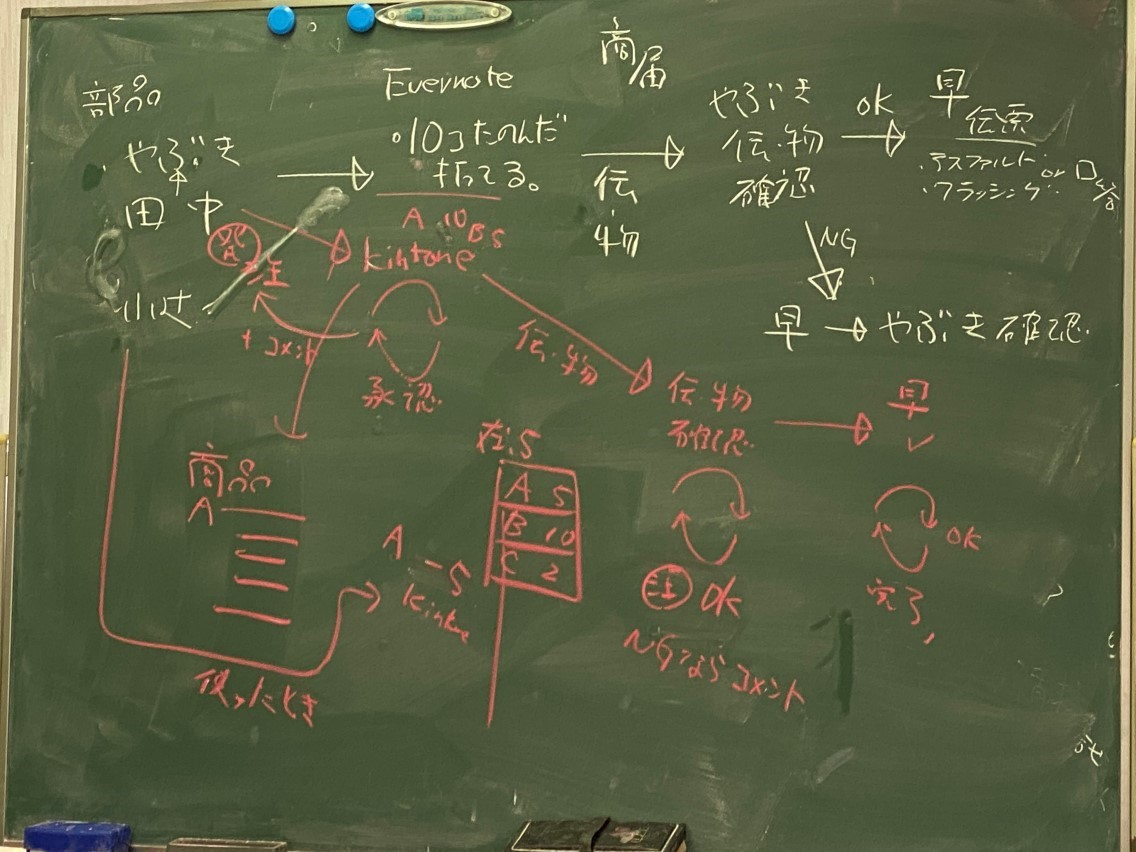 部品
やぶき
田中
小辻
Evernote
・10コたのんだ
打ってる。
商
届
伝
物
やぶき
伝・物
確認
OK
早
伝票
・アスファルト or
・フラッシング
NG
早 → やぶき確認
発注
A 10 B 5
kintone
+コメント
承認
伝・物
伝・物
確認
早
✓
商品
A
在.5
A 5
B 10
C 2
A -5
kintone
使ったとき
注 OK
NGならコメント
OK
完了